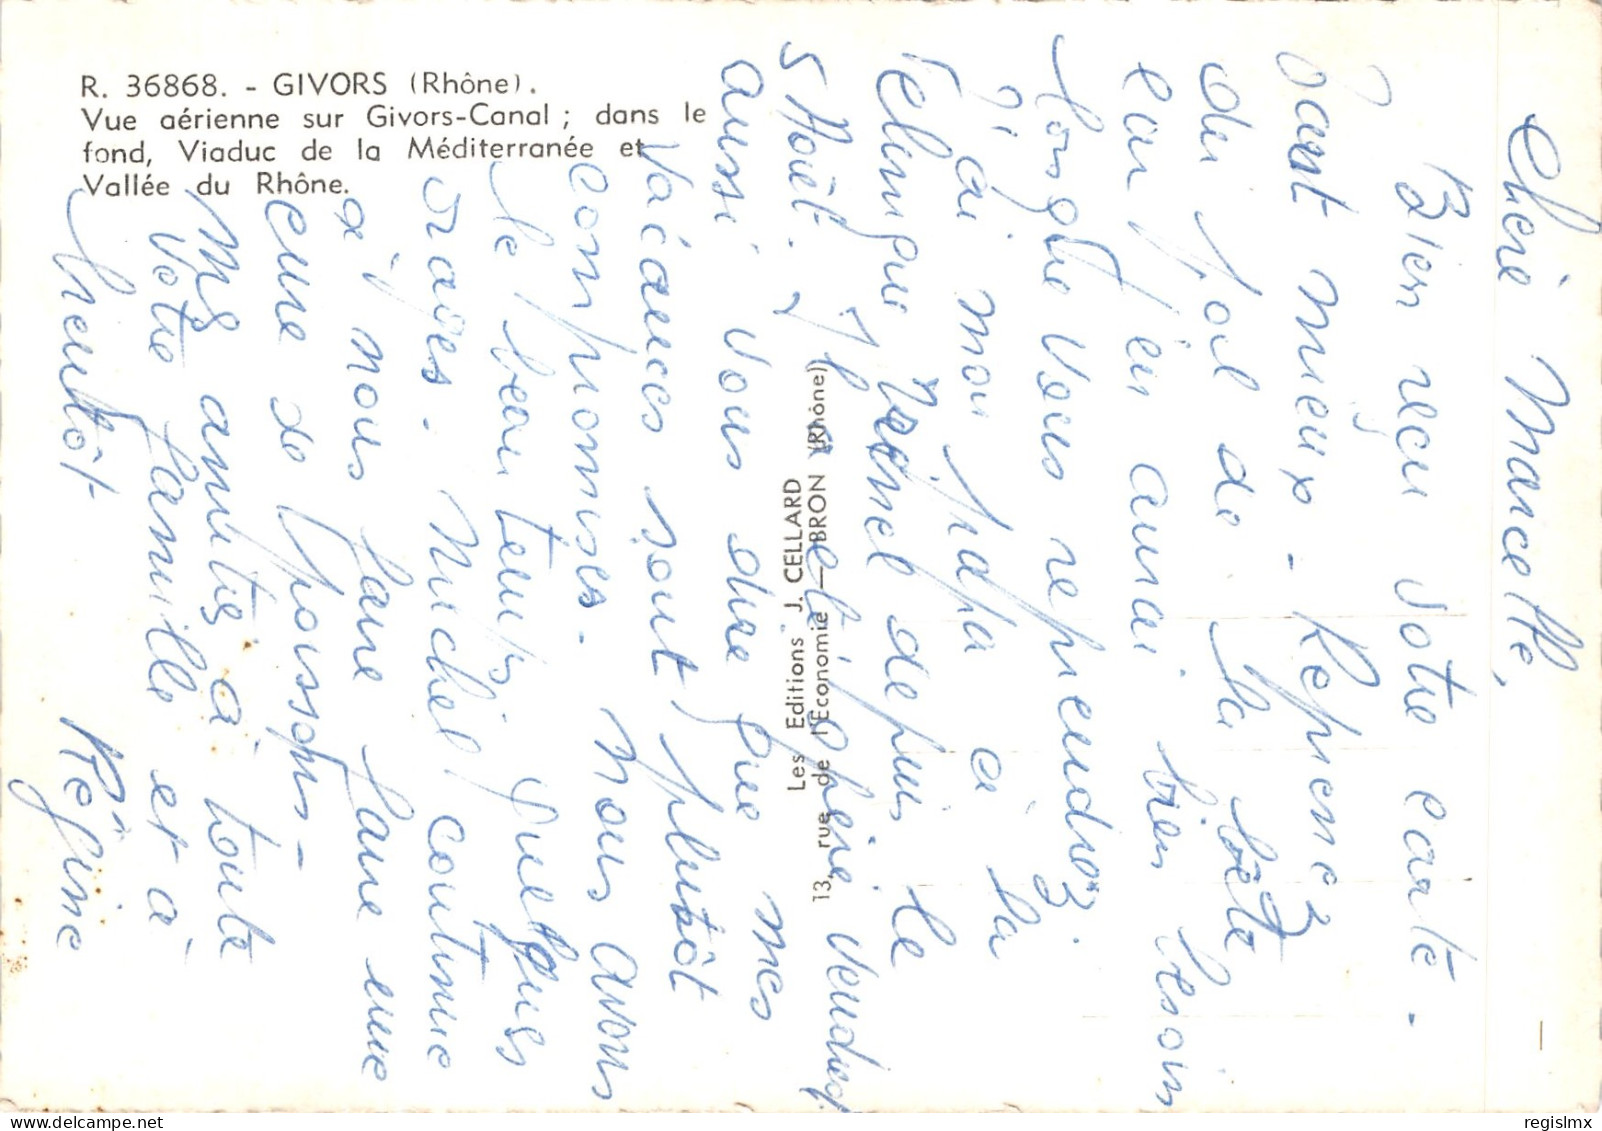 R. 36868. - GIVORS (Rhône).
Vue aérienne sur Givors-Canal ; dans le
fond, Viaduc de la Méditerranée et
Vallée du Rhône.
Les Editions J. CELLARD
13, rue de l'Economie — BRON (Rhône)
Chère Marcelle,
Bien reçu votre carte -
tant mieux - Reprenez
du poil de la bête
car j'en aurai bien besoin
lorsque vous reprendrez.
J'ai mon papa à la
Clinique depuis le
5 Août. Il a été opéré vendredi
aussi vous dire que mes
vacances sont plutôt
compromises. Nous avons
le beau temps, quelques
orages. Michel continue
à nous faire faire une
cure de poissons -
Mes amitiés à toute
votre famille et à
bientôt
Régine
regislmx